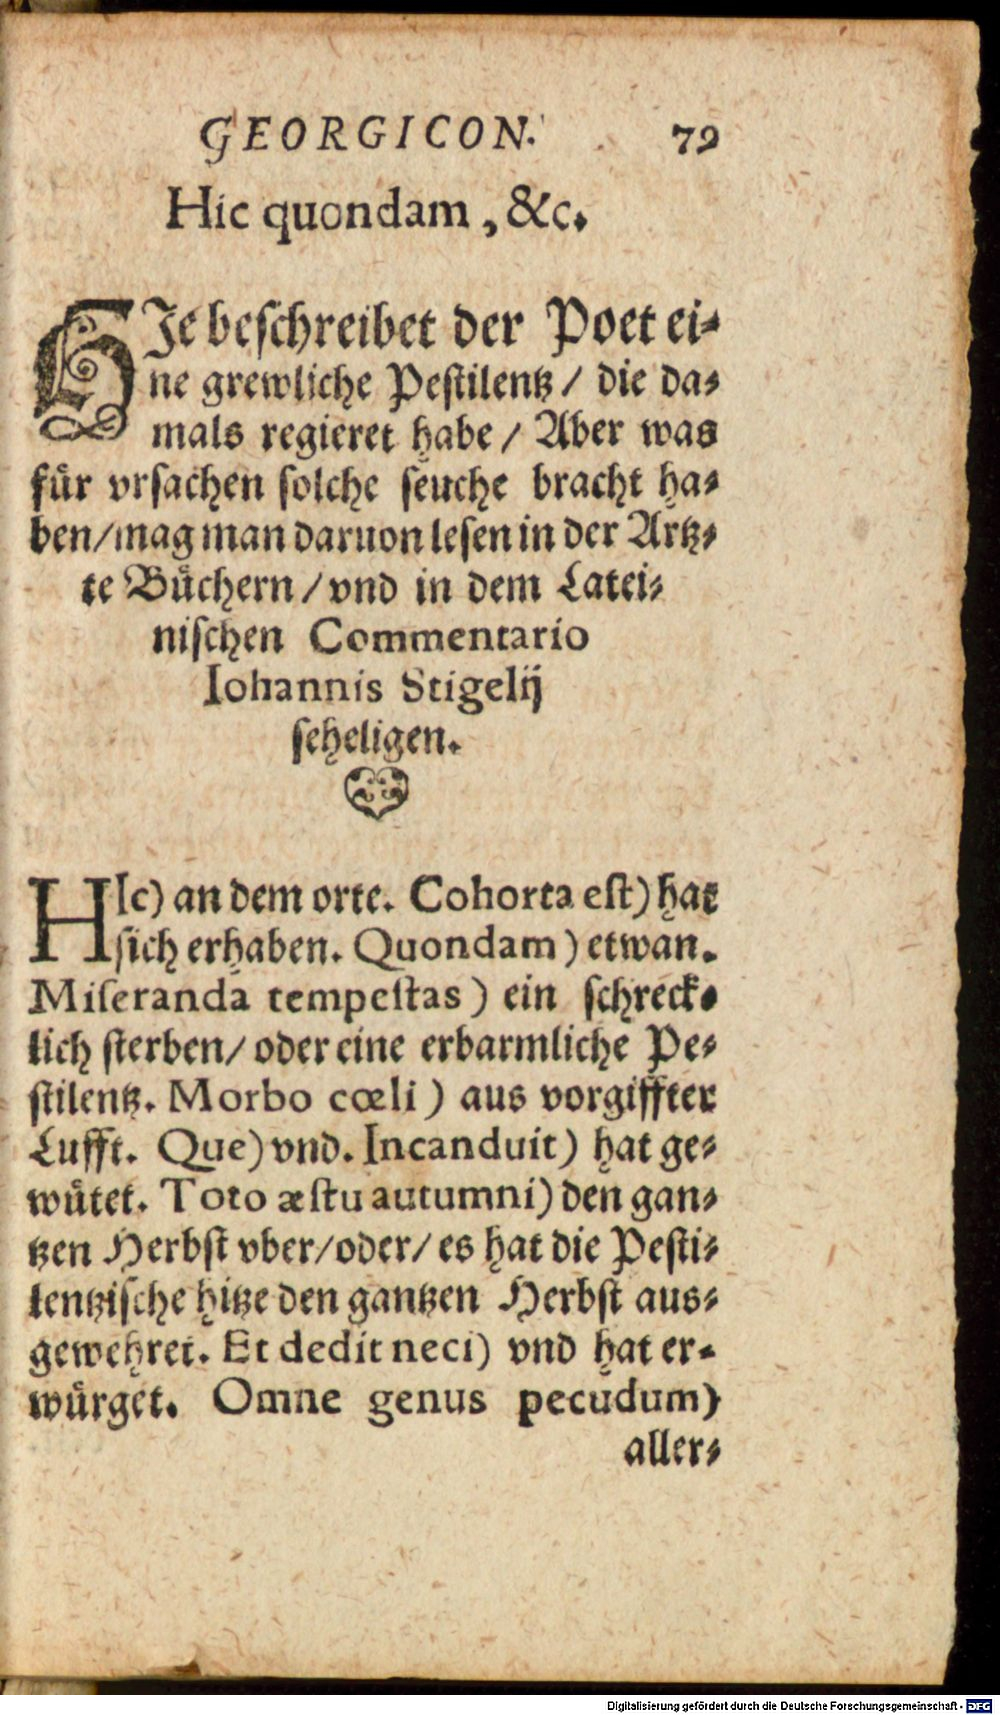 GEORGICON. 79
Hic quondam, &c.
HIe beſchreibet der Poet ei⸗
ne grewliche Peſtilentz / die da⸗
mals regieret habe / Aber was
fuͤr vrſachen ſolche ſeuche bracht ha⸗
ben/mag man daruon leſen in der Artz⸗
te Buͤchern / vnd in dem Latei⸗
niſchen Commentario
Iohannis Stigelij
ſeheligen.
HIc) an dem orte. Cohorta eſt) hat
ſich erhaben. Quondam) etwan.
Miſeranda tempeſtas) ein ſchreck⸗
lich ſterben/ oder eine erbarmliche Pe⸗
ſtilentz. Morbo cœli) aus vorgiffter
Lufft. Que) vnd. Incanduit) hat ge⸗
wuͤtet. Toto æſtu autumni) den gan⸗
tzen Herbſt vber/oder/ es hat die Peſti⸗
lentziſche hitze den gantzen Herbſt aus⸗
gewehret. Et dedit neci) vnd hat er⸗
wuͤrget. Omne genus pecudum)
aller⸗
Digitalisierung gefördert durch die Deutsche Forschungsgemeinschaft - DFG